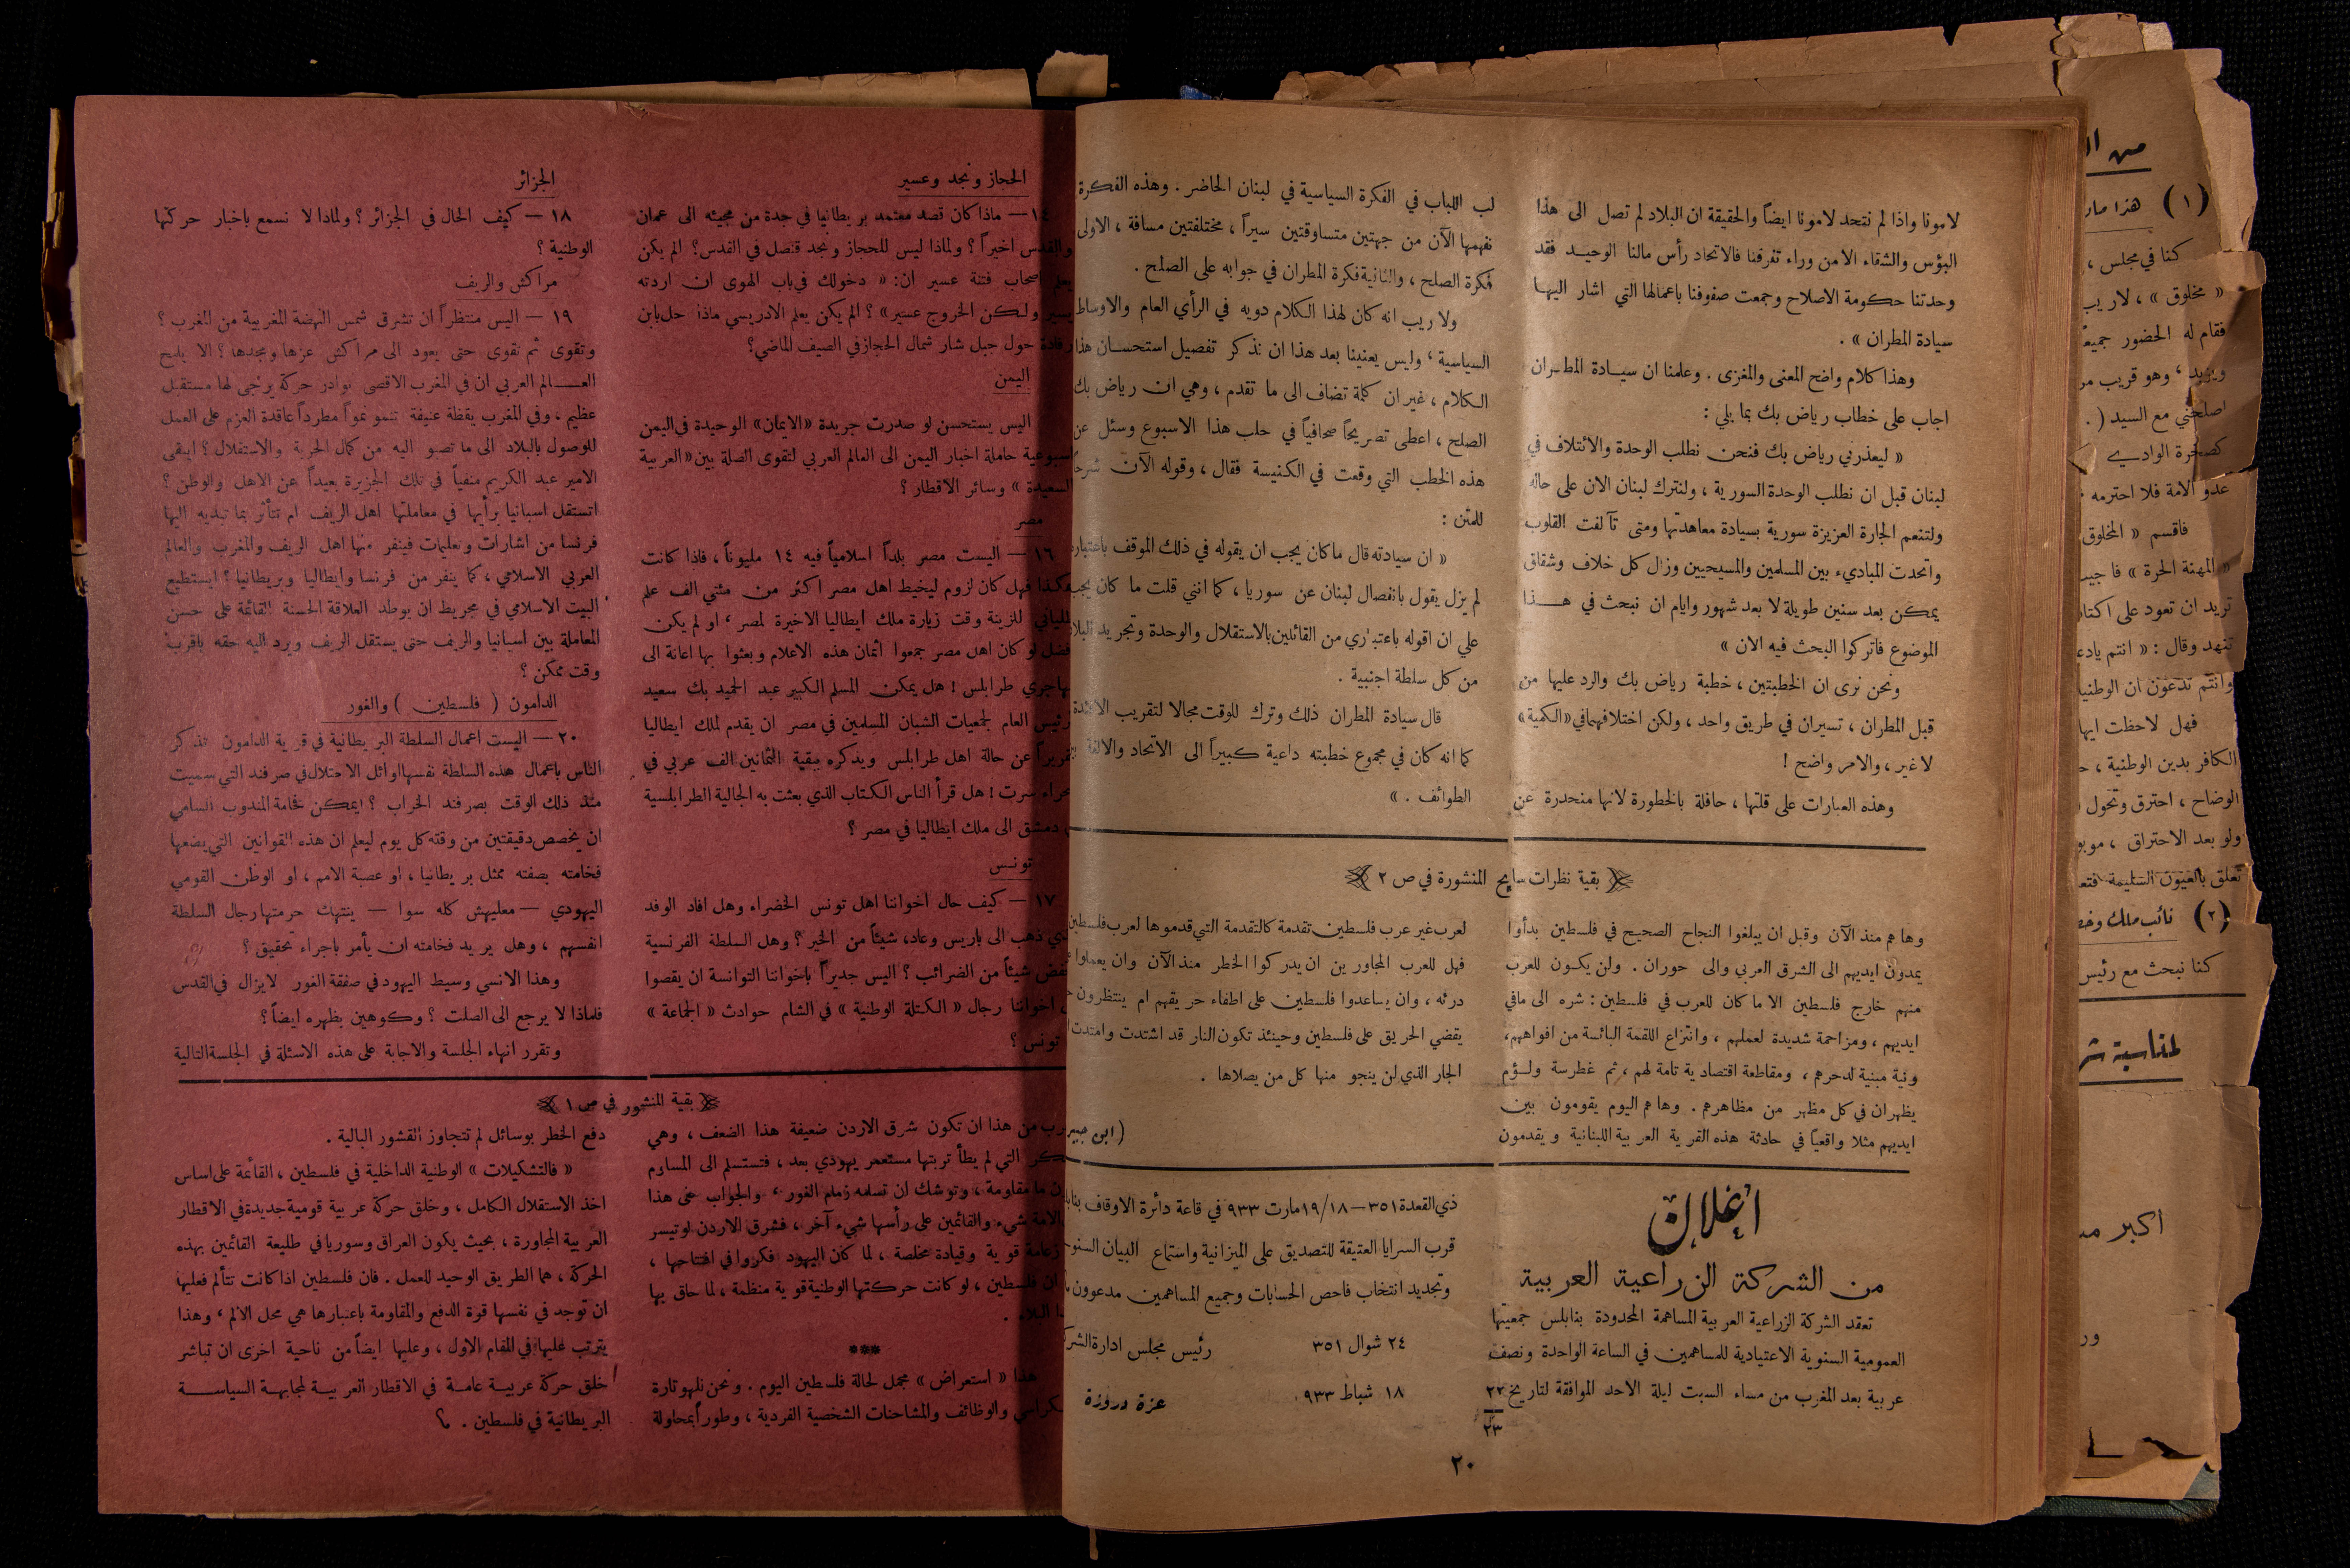 لامونا واذا لم نتحد لامونا ايضاً والحقيقة ان البلاد لم تصل الى هذا
البؤس والشقاء الا من وراء تفرقنا فالاتحاد رأس مالنا الوحيد فقد
وحدتنا حكومة الاصلاح وجمعت صفوفنا باعمالها التي اشار اليها
سيادة المطران » .
وهذا كلام واضح المعنى والمغزى . وعلمنا ان سيادة المطران
اجاب على خطاب رياض بك بما يلي :
« ليعذرني رياض بك فنحن نطلب الوحدة والائتلاف في
لبنان قبل ان نطلب الوحدة السورية ، ولنترك لبنان الان على حاله
ولتنعم الجارة العزيزة سورية بسيادة معاهدتها ومتى تآلفت القلوب
واتحدت المباديء بين المسلمين والمسيحيين وزال كل خلاف وشقاق
يمكن بعد سنين طويلة لا بعد شهور وايام ان نبحث في هذا
الموضوع فاتركوا البحث فيه الان »
ونحن نرى ان الخطبتين ، خطبة رياض بك والرد عليها من
قبل المطران ، تسيران في طريق واحد ، ولكن اختلافهما في «الكمية»
لا غير ، والامر واضح !
وهذه العبارات على قلتها ، حافلة بالخطورة لانها منحدرة عن
لب اللباب في الفكرة السياسية في لبنان الحاضر . وهذه الفكرة
نفهمها الآن من جهتين متساوقتين سيراً ، مختلفتين مسافة ، الاولى
فكرة الصلح ، والثانية فكرة المطران في جوابه على الصلح .
ولا ريب انه كان لهذا الكلام دويه في الرأي العام والاوساط
السياسية ، وليس يعنينا بعد هذا ان نذكر تفصيل استحسان هذا
الكلام ، غير ان كلمة تضاف الى ما تقدم ، وهي ان رياض بك
الصلح ، اعطى تصريحاً صحافياً في حلب هذا الاسبوع وسئل عن
هذه الخطب التي وقعت في الكنيسة فقال ، وقوله الآن شرحاً
للمتن :
« ان سيادته قال ما كان يجب ان يقوله في ذلك الموقف باعتباره
لم يزل يقول بانفصال لبنان عن سوريا ، كما انني قلت ما كان يجب
علي ان اقوله باعتباري من القائلين بالاستقلال والوحدة وتجريد البلاد
من كل سلطة اجنبية .
قال سيادة المطران ذلك وترك للوقت مجالا لتقريب الافئدة
كما انه كان في مجموع خطبته داعية كبيراً الى الاتحاد والالفة
الطوائف . »
بقية نظرات سايح المنشورة في ص ٢
وها هم منذ الآن وقبل ان يبلغوا النجاح الصحيح في فلسطين بدأوا
يمدون ايديهم الى الشرق العربي والى حوران . ولن يكون للعرب
منهم خارج فلسطين الا ما كان للعرب في فلسطين : شره الى مافي
ايديهم ، ومزاحمة شديدة لعملهم ، وانتزاع اللقمة البائسة من افواههم،
ونية مبنية لدحرهم ، ومقاطعة اقتصادية تامة لهم ، ثم غطرسة ولؤم
يظهران في كل مظهر من مظاهرهم . وها هم اليوم يقومون بين
ايديهم مثلا واقعياً في حادثة هذه القرية العربية اللبنانية ويقدمون
لعرب غير عرب فلسطين تقدمة كالتقدمة التي قدموها لعرب فلسطين
فهل للعرب المجاورين ان يدركوا الخطر منذ الآن وان يعملوا
درئه ، وان يساعدوا فلسطين على اطفاء حريقهم ام ينتظرون
يقضي الحريق على فلسطين وحينئذ تكون النار قد اشتدت وامتدت
الجار الذي لن ينجو منها كل من يصلاها .
(ابن جبير
اعلان
من الشركة الزراعية العربية
تعقد الشركة الزراعية العربية المساهمة المحدودة بنابلس جمعيتها
العمومية السنوية الاعتيادية للمساهمين في الساعة الواحدة ونصف
عربية بعد المغرب من مساء السبت ليلة الاحد الموافقة لتاريخ ٢٢
٢٣
ذي القعدة ٣٥١ — ١٨/١٩ مارت ٩٣٣ في قاعة دائرة الاوقاف
قرب السرايا العتيقة للتصديق على الميزانية واستماع البيان السنوي
وتجديد انتخاب فاحص الحسابات وجميع المساهمين مدعوون
٢٤ شوال ٣٥١ رئيس مجلس ادارة الشركة
١٨ شباط ٩٣٣ عزة دروزة
٢٠
الحجاز ونجد وعسير
١٤ — ماذا كان قصد معتمد بريطانيا في جدة من مجيئه الى عمان
والقدس اخيراً ؟ ولماذا ليس للحجاز ونجد قنصل في القدس؟ الم يكن
يعلم اصحاب فتنة عسير ان : « دخولك في باب الهوى ان اردته
يسير ولكن الخروج عسير » ؟ الم يكن يعلم الادريسي ماذا حل بابن
رفادة حول جبل شار شمال الحجاز في الصيف الماضي؟
اليمن
اليس يستحسن لو صدرت جريدة «الايمان» الوحيدة في اليمن
اسبوعية حاملة اخبار اليمن الى العالم العربي لتقوى الصلة بين «العربية
السعيدة » وسائر الاقطار ؟
مصر
١٦ — اليست مصر بلداً اسلامياً فيه ١٤ مليوناً ، فاذا كانت
هكذا فهل كان لزوم ليخيط اهل مصر اكثر من مئتي الف علم
للزينة وقت زيارة ملك ايطاليا الاخيرة لمصر ، او لم يكن
لو كان اهل مصر جمعوا اثمان هذه الاعلام وبعثوا بها اعانة الى
مهاجري طرابلس ! هل يمكن المسلم الكبير عبد الحميد بك سعيد
رئيس العام لجمعيات الشبان المسلمين في مصر ان يقدم لملك ايطاليا
تقريراً عن حالة اهل طرابلس ويذكره ببقية الثمانين الف عربي في
سرت ! هل قرأ الناس الكتاب الذي بعثت به الجالية الطرابلسية
دمشق الى ملك ايطاليا في مصر ؟
تونس
١٧ — كيف حال اخواننا اهل تونس الخضراء وهل افاد الوفد
ذهب الى باريس وعاد، شيئاً من الخير ؟ وهل السلطة الفرنسية
شيئاً من الضرائب ؟ اليس جديراً باخواننا التوانسة ان يقصوا
اخواننا رجال « الكتلة الوطنية » في الشام حوادث « الجماعة »
تونس ؟
الجزائر
١٨ — كيف الحال في الجزائر ؟ ولماذا لا نسمع باخبار حركتها
الوطنية ؟
مراكش والريف
١٩ — اليس منتظراً ان تشرق شمس النهضة المغربية من المغرب ؟
وتقوى ثم تقوى حتى يعود الى مراكش عزها ومجدها ؟ الا
العالم العربي ان في المغرب الاقصى بوادر حركة يرجى لها مستقبل
عظيم ، وفي المغرب يقظة عنيفة تنمو نمواً مطرداً عاقدة العزم على العمل
للوصول بالبلاد الى ما تصبو اليه من كمال الحرية والاستقلال ؟ ايبقى
الامير عبد الكريم منفياً في تلك الجزيرة بعيداً عن الاهل والوطن ؟
اتستقل اسبانيا برأيها في معاملتها اهل الريف ام تتأثر بما تبديه اليها
فرنسا من اشارات وتعليمات فينفر منها اهل الريف والمغرب والعالم
العربي الاسلامي ، كما ينفر من فرنسا وايطاليا وبريطانيا ؟ ايستطيع
البيت الاسلامي في مجريط ان يوطد العلاقة الحسنة القائمة على حسن
المعاملة بين اسبانيا والريف حتى يستقل الريف ويرد اليه حقه باقرب
وقت ممكن ؟
الدامون ( فلسطين ) والغور
٢٠ — اليست اعمال السلطة البريطانية في قرية الدامون تذكر
الناس باعمال هذه السلطة نفسها اوائل الاحتلال في صرفند التي سميت
منذ ذلك الوقت بصرفند الخراب ؟ ايمكن فخامة المندوب السامي
ان يخصص دقيقتين من وقته كل يوم ليعلم ان هذه القوانين التي يضعها
فخامته بصفته ممثل بريطانيا ، او عصبة الامم ، او الوطن القومي
اليهودي — معليهش كله سوا — ينتهك حرمتها رجال السلطة
انفسهم ، وهل يريد فخامته ان يأمر باجراء تحقيق ؟
وهذا الانسي وسيط اليهود في صفقة الغور لا يزال في القدس
فلماذا لا يرجع الى الصلت ؟ وكوهين بظهره ايضاً ؟
وتقرر انهاء الجلسة والاجابة على هذه الاسئلة في الجلسة التالية
بقية المنشور في ص ١
من هذا ان تكون شرق الاردن ضعيفة هذا الضعف ، وهي
التي لم يطأ تربتها مستعمر يهودي بعد ، فتستسلم الى المساوم
ما مقاومة ، وتوشك ان تسلمه زمام الغور ، والجواب على هذا
الامة شيء والقائمين على رأسها شيء آخر ، فشرق الاردن لو تيسر
زعامة قوية وقيادة مخلصة ، لما كان اليهود فكروا في افتتاحها ،
ان فلسطين ، لو كانت حركتها الوطنية قوية منظمة ، لما حاق بها
البلاء .
***
هذا « استعراض » مجمل لحالة فلسطين اليوم . ونحن نلهو تارة
والوظائف والمشاحنات الشخصية الفردية ، وطوراً بمحاولة
دفع الخطر بوسائل لم تتجاوز القشور البالية .
« فالتشكيلات » الوطنية الداخلية في فلسطين ، القائمة على اساس
اخذ الاستقلال الكامل ، وخلق حركة عربية قومية جديدة في الاقطار
العربية المجاورة ، بحيث يكون العراق وسوريا في طليعة القائمين بهذه
الحركة ، هما الطريق الوحيد للعمل . فان فلسطين اذا كانت تتألم فعليها
ان توجد في نفسها قوة الدفع والمقاومة باعتبارها هي محل الالم ، وهذا
يترتب عليها في المقام الاول ، وعليها ايضاً من ناحية اخرى ان تباشر
خلق حركة عربية عامة في الاقطار العربية لمجابهة السياسة
البريطانية في فلسطين .
(١) هذا
كنا في مجلس ،
« مخلوق » ، لا ريب
فقام له الحضور
ويزيد ، وهو قريب
اصلحني مع السيد (
كصخرة الوادي
عدو الامة فلا احترمه
فاقسم « المخلوق
« المهنة الحرة »
تريد ان تعود على
تنهد وقال : « انتم
وانتم تدعون ان
فهل لاحظت
الكافر بدين الوطنية ،
الوضاح ، احترق وتحول
ولو بعد الاحتراق ،
تعلق بالعيون السليمة
(٢) نائب ملك
كنا نبحث مع رئيس
لمناسبة
اكبر